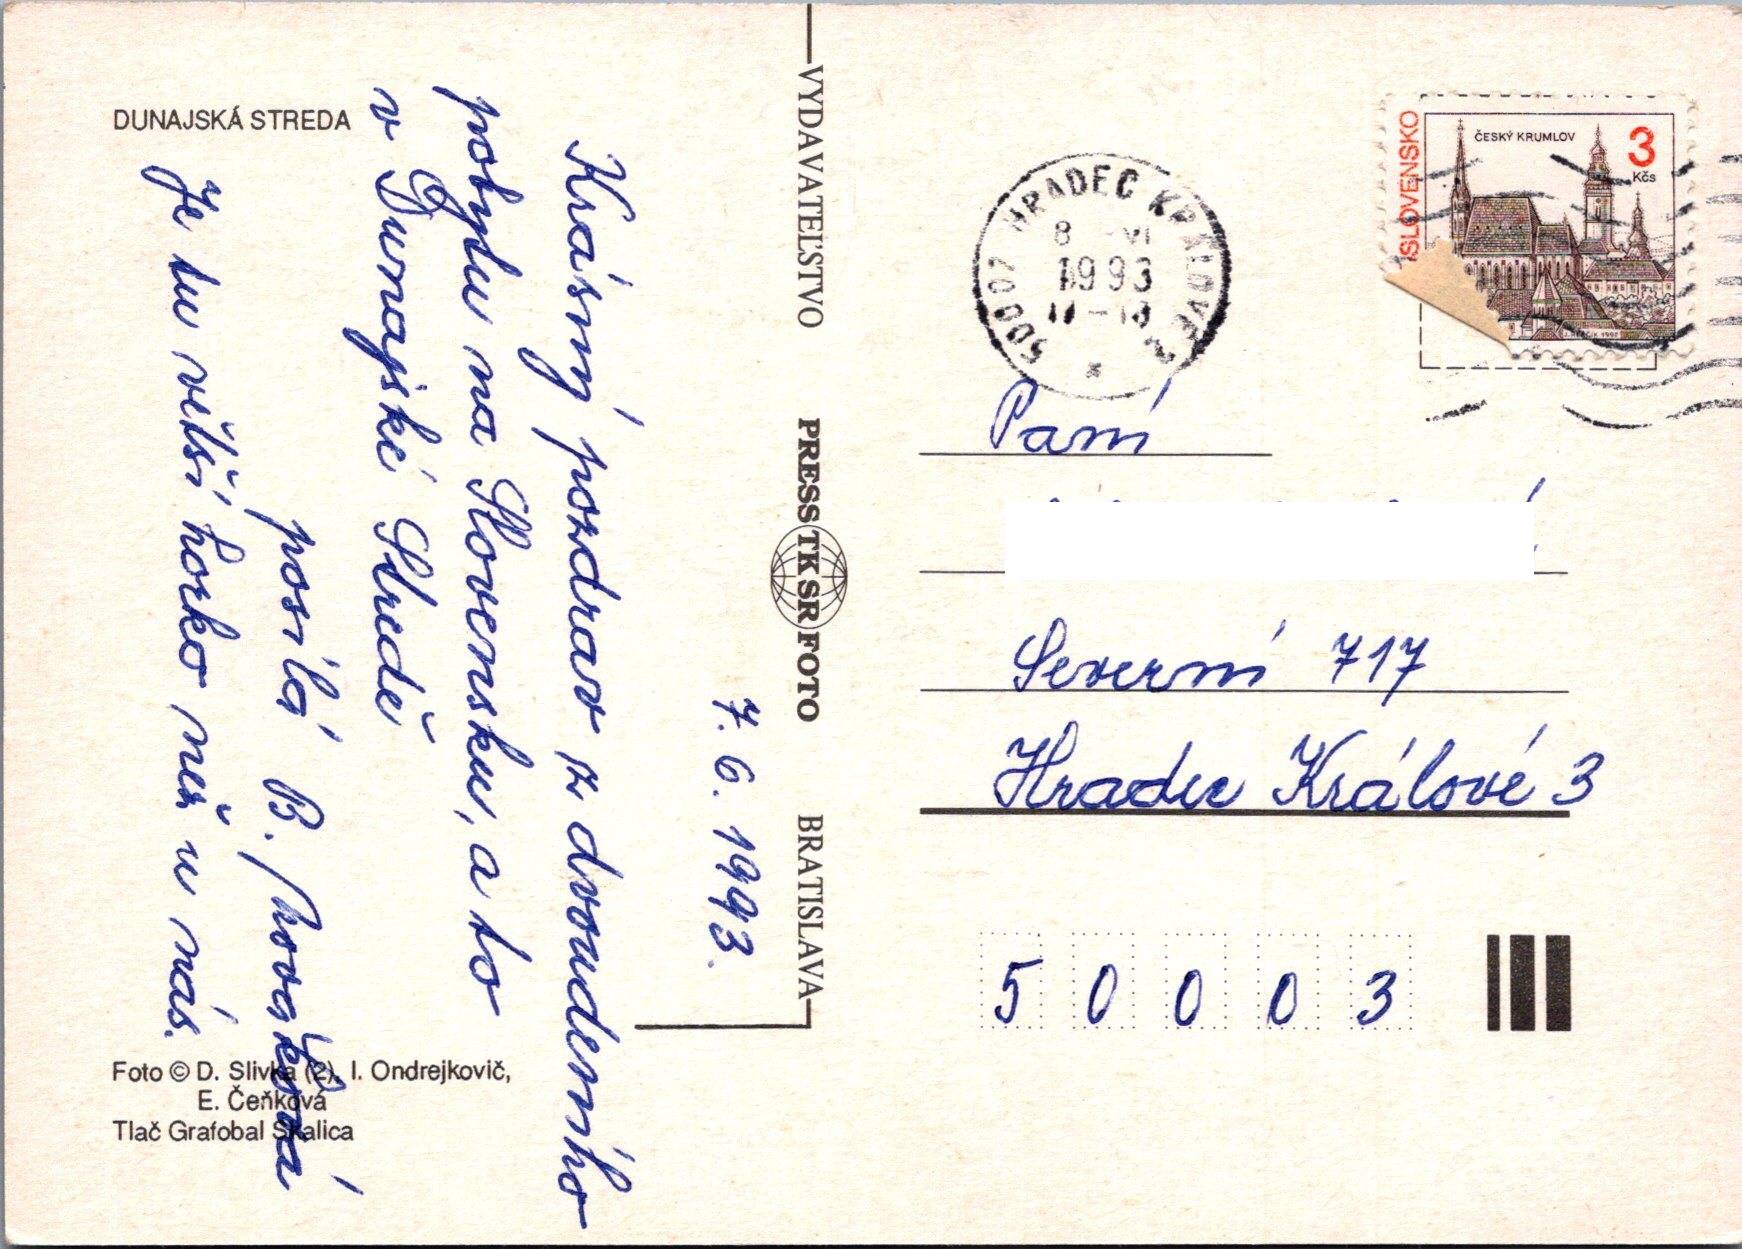 DUNAJSKÁ STREDA
7. 6. 1993.
Krásný pozdrav z dvoudenního
pobytu na Slovensku, a to
v Dunajské Stredě
posílá B.
Je tu větší horko než u nás.
Foto © D. Slivka (2), I. Ondrejkovič,
E. Čeňková
Tlač Grafobal Skalica
VYDAVATEĽSTVO PRESSTKSRFOTO BRATISLAVA
500 02 HRADEC KRÁLOVÉ 2
8 -VI
1993
11-13
*
SLOVENSKO
ČESKÝ KRUMLOV
3
Kčs
Paní
Severní 717
Hradec Králové 3
50003